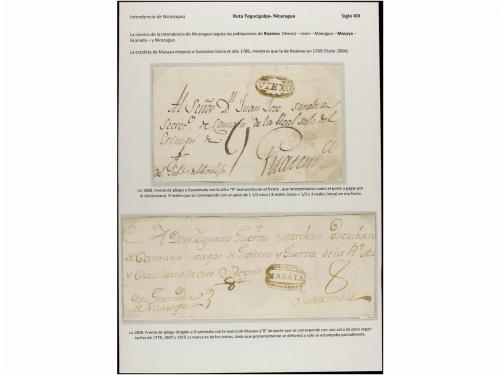 Intendencia de Nicaragua Ruta Tegucigalpa- Nicaragua Siglo XIX
La carrera de la intendencia de Nicaragua seguía las poblaciones de Realexo (Viexo) – León – Managua – Masaya –
Granada – y Nicaragua
La estafeta de Masaya empezó a funcionar hacia el año 1786, mientras que la de Realexo en 1769 (Tizón 2004)
VIEXO
Al Señor Dn Juan José
Secret.o de Camara de la Real Sala del
Crimen de
9
Guatem
ca 1800. Frente de pliego a Guatemala con la cifra "9" manuscrita en el frente, que interpretamos como el porte a pagar por
el destinatario. 9 reales que se corresponde con un peso de 1 1/3 onza ( 8 reales /onza + 1/3 x 3 reales /onza) en esa fecha
A Don Ignacio Guerra
de Camara
y de Guerra de la
de este Reyno
8
MASAYA
8
Guatemala
del Intendente
de Nicaragua
ca 1800. Frente de pliego dirigido a Guatemala con la marca de Masaya y"8" de porte que se corresponde con una onza de peso según
tarifas de 1779, 1807 y 1815 La marca es de los inicios, dado que posteriormente se deforma y solo se estampaba parcialmente.